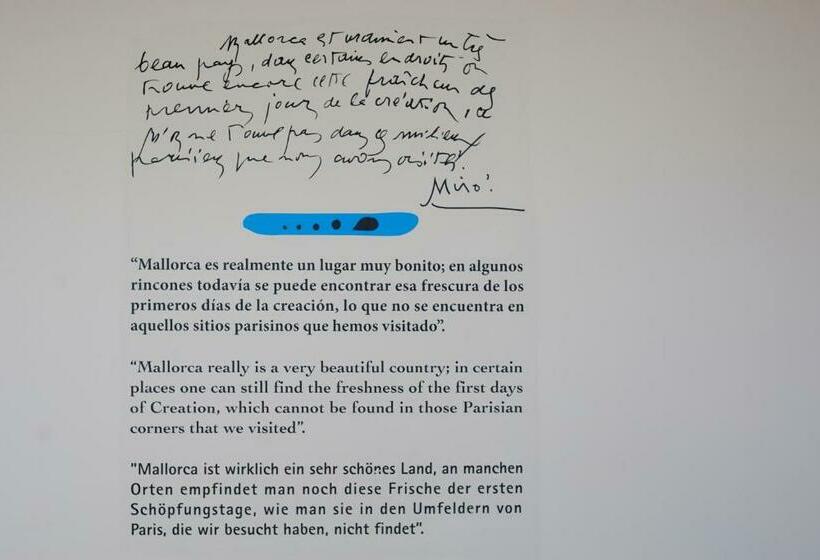 Mallorca est vraiment un très
beau pays, dans certains endroits on
trouve encore cette fraîcheur des
premiers jours de la création, ce
qu'on ne trouve pas dans ces milieux
parisiens que nous avons visités.
Miró.
“Mallorca es realmente un lugar muy bonito; en algunos
rincones todavía se puede encontrar esa frescura de los
primeros días de la creación, lo que no se encuentra en
aquellos sitios parisinos que hemos visitado”.
“Mallorca really is a very beautiful country; in certain
places one can still find the freshness of the first days
of Creation, which cannot be found in those Parisian
corners that we visited”.
"Mallorca ist wirklich ein sehr schönes Land, an manchen
Orten empfindet man noch diese Frische der ersten
Schöpfungstage, wie man sie in den Umfeldern von
Paris, die wir besucht haben, nicht findet".